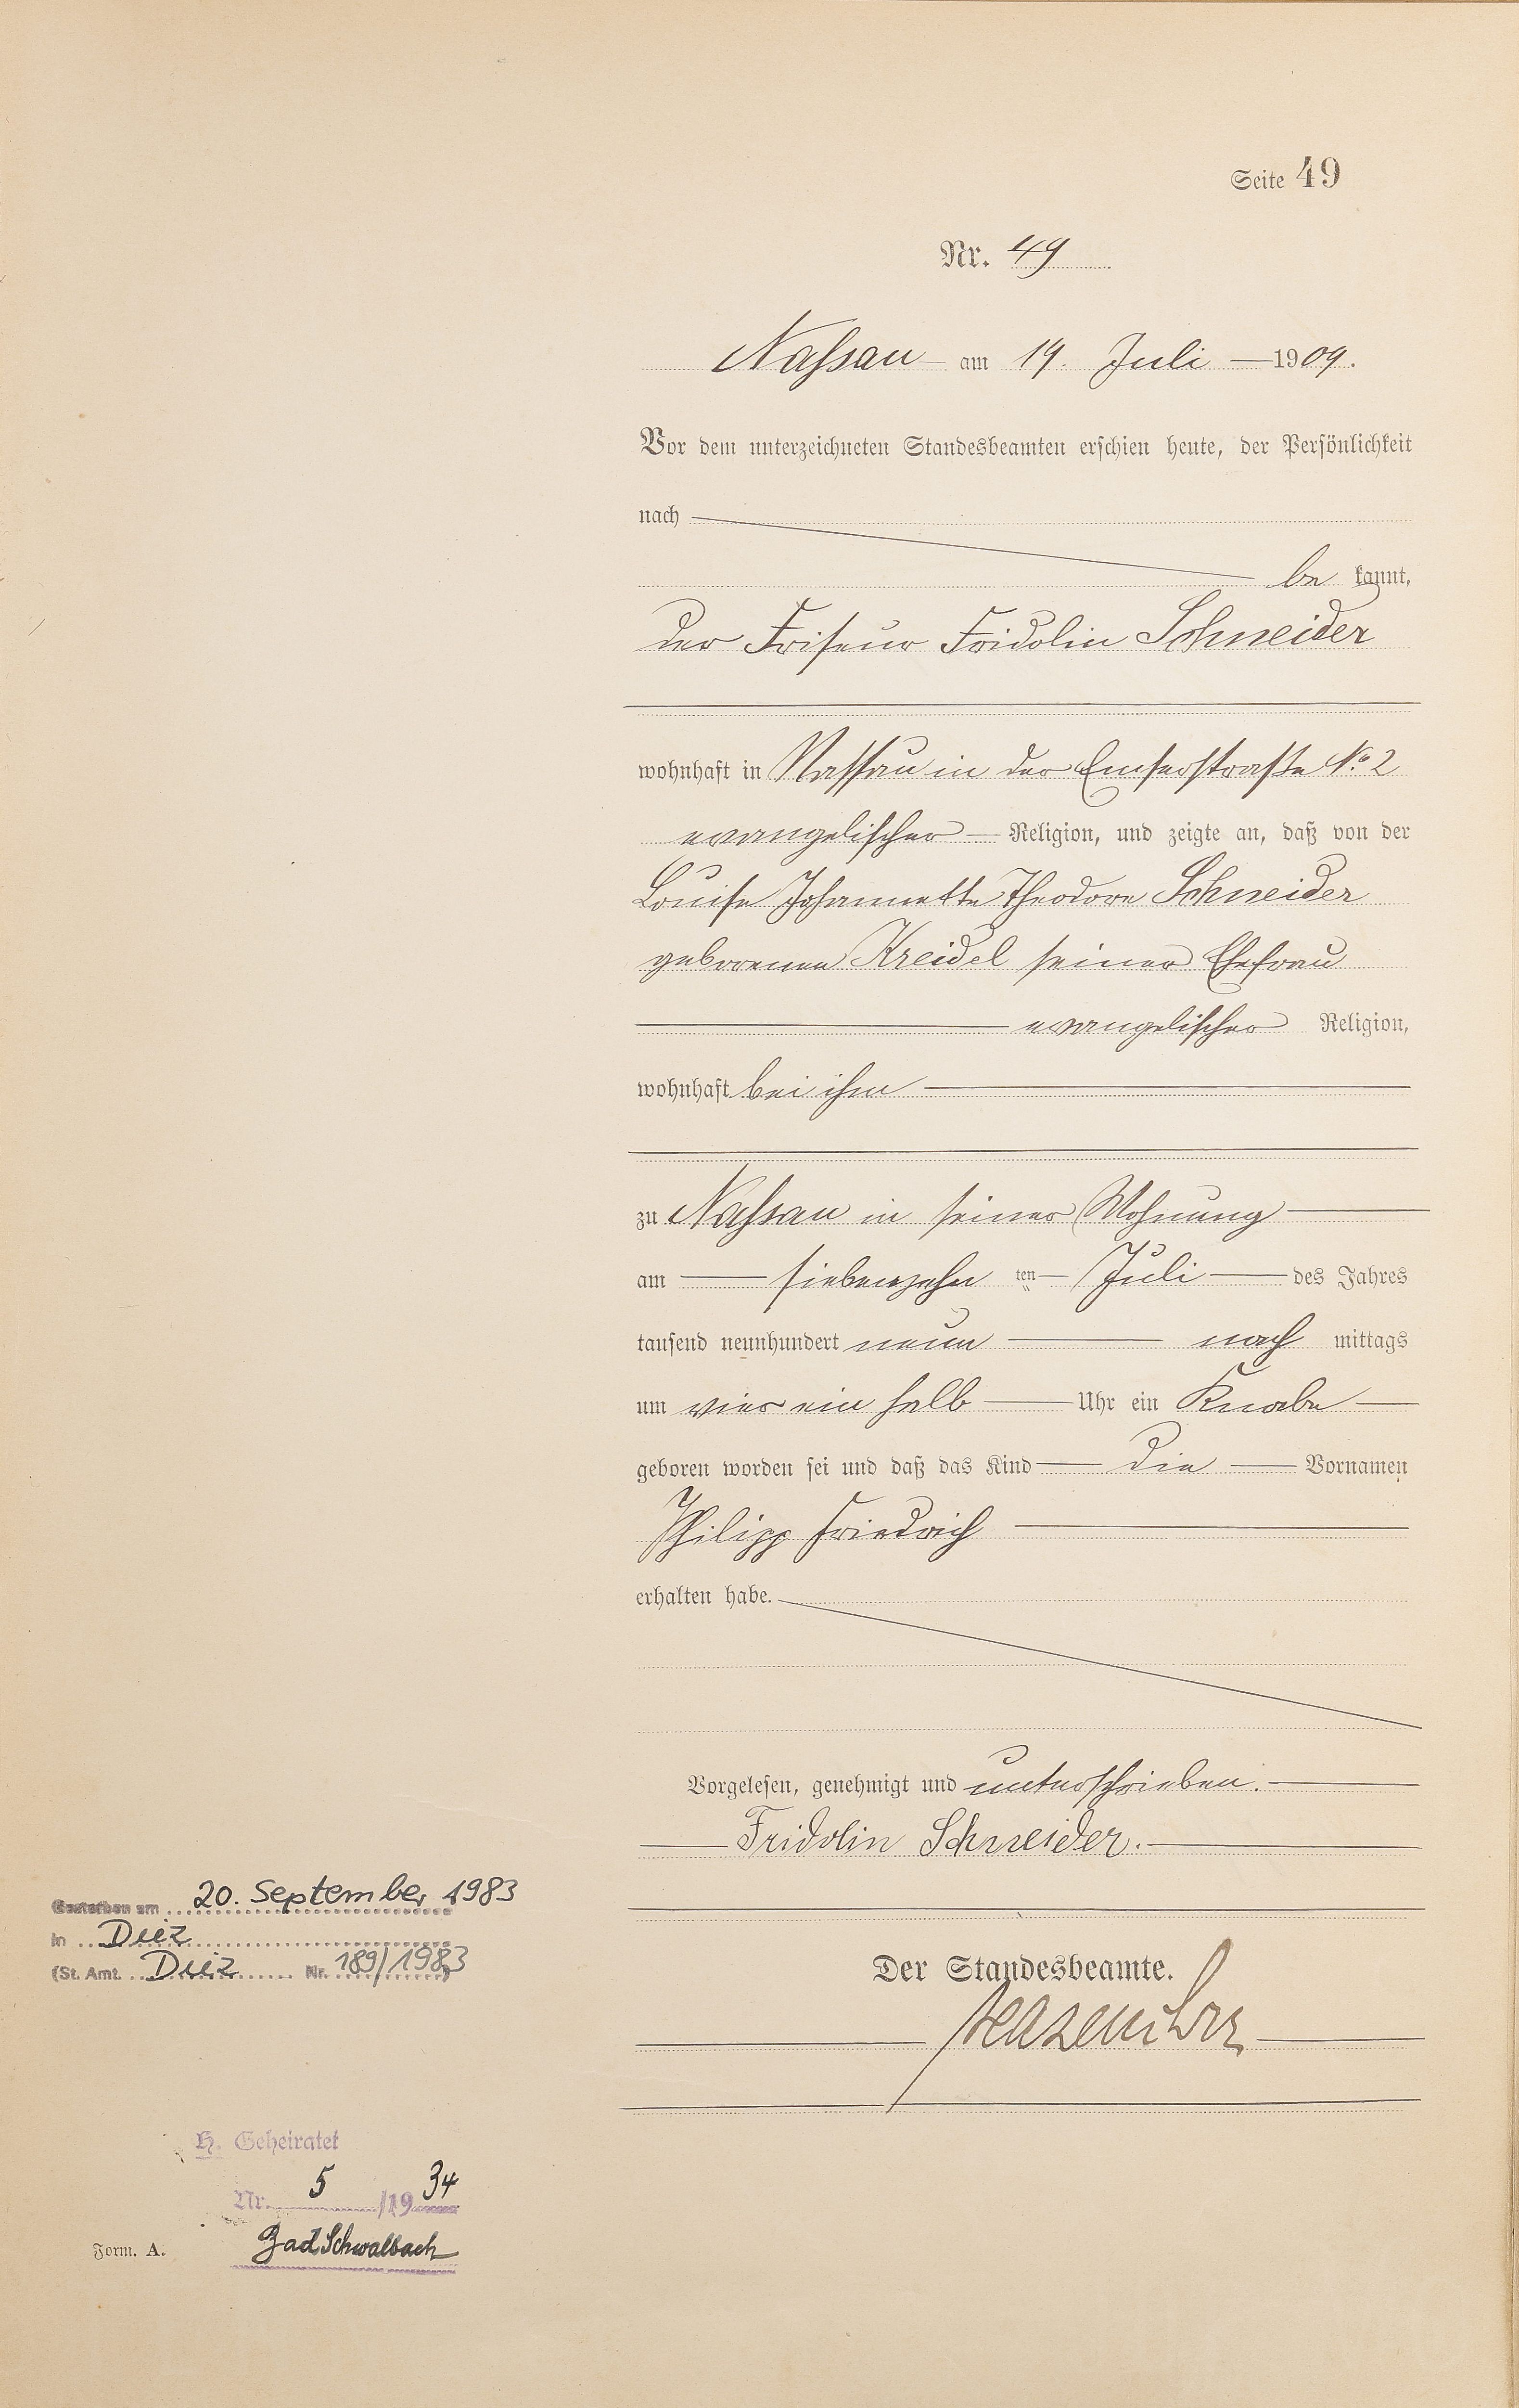 Seite 49
Nr. 49
Nassau am 19. Juli 1909.
Vor dem unterzeichneten Standesbeamten erschien heute, der Persönlichkeit
nach
be kannt,
der Friseur Fridolin Schneider
wohnhaft in Nassau in der Emserstraße No 2
evangelischer Religion, und zeigte an, daß von der
Louise Johannette Theodore Schneider
geborenen Kreidel seiner Ehefrau
evangelischer Religion,
wohnhaft bei ihm
zu Nassau in seiner Wohnung
am siebenzehn ten Juli des Jahres
tausend neunhundert neun nach mittags
um vier ein halb Uhr ein Knabe
geboren worden sei und daß das Kind die Vornamen
Philipp Friedrich
erhalten habe.
Vorgelesen, genehmigt und unterschrieben.
Fridolin Schneider.
Der Standesbeamte.
Gestorben am 20. September 1983
in Diez
(St. Amt. Diez Nr. 189/1983)
H. Geheiratet
Nr. 5/1934
Bad Schwalbach
Form. A.